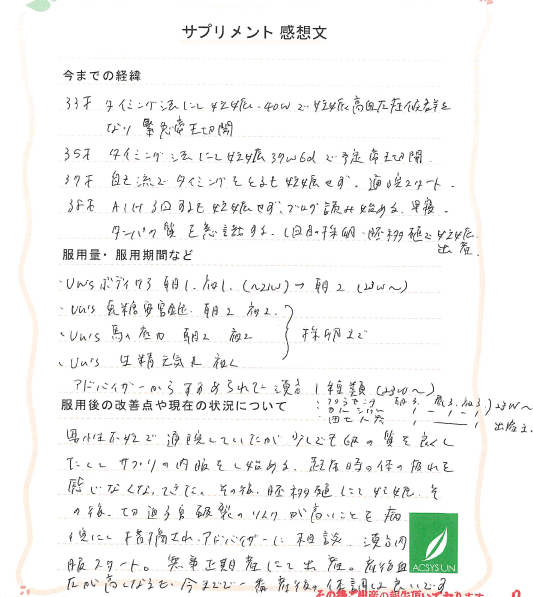 サプリメント 感想文
今までの経緯
33才 タイミング法にて妊娠。40wで妊娠高血圧症候群と
なり 緊急帝王切開
35才 タイミング法にて妊娠 39w6dで予定帝王切開.
37才 自己流でタイミングをとるも妊娠せず. 通院スタート.
38才 AIHを3回するも妊娠せず. ブログ読み始める.
タンパク質を意識する. 1回目の採卵・胚移植で妊娠.
出産.
服用量・服用期間など
・UWSボディケア 朝1.夜1. (~22W) → 朝2 (23W~)
・UW'S 朝2 夜2.
・UW'S 馬の 朝2 夜2
採卵まで
・UW'S 生精元気 夜2
アドバイザーからすすめられた漢方 1種類 (23W~)
服用後の改善点や現在の状況について
・カルシウム
23W~
出産まで
男性不妊で通院していたが 少しでも卵の質を良くし
たくて サプリの内服をし始める. 起床時の体の疲れを
感じなくなってきた。その後. 胚移植にて妊娠. そ
の後. 切迫子宮破裂のリスクが高いことを病
院にて指摘され. アドバイザーに相談. 漢方内
服スタート。無事正期産にて出産. 産後血
圧が高くなるも. 今までで一番産後の体調は良いです
ACSYSUN